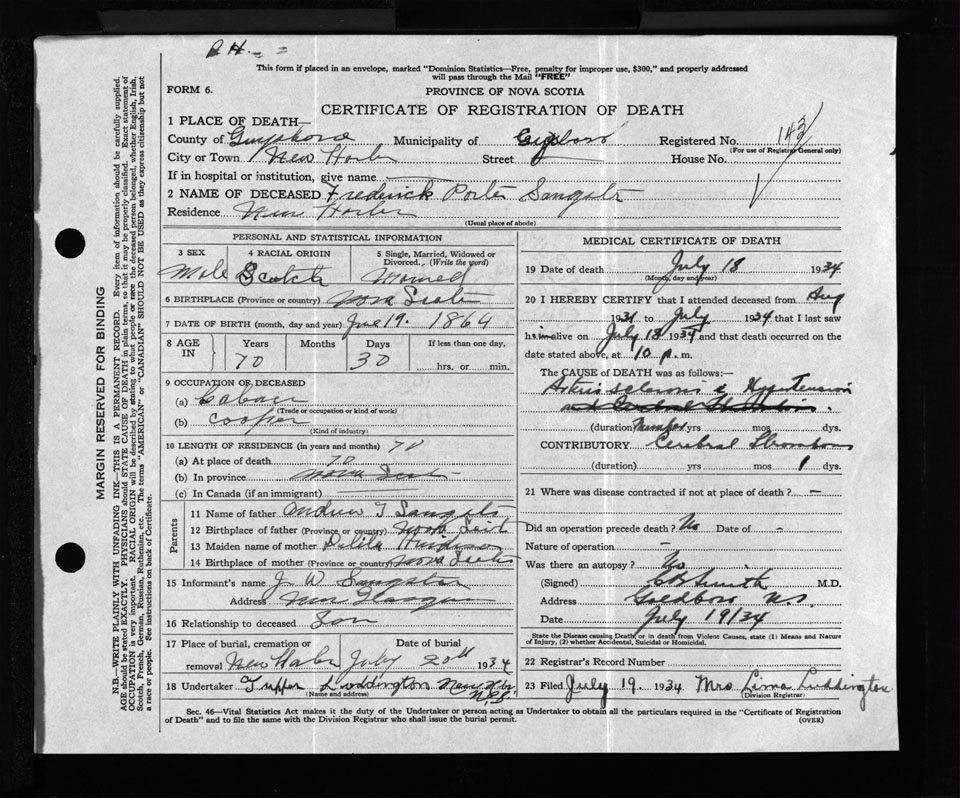 B H. - =
This form if placed in an envelope, marked "Dominion Statistics—Free, penalty for improper use, $300," and properly addressed
will pass through the Mail "FREE"
FORM 6.
PROVINCE OF NOVA SCOTIA
CERTIFICATE OF REGISTRATION OF DEATH
1 PLACE OF DEATH—
County of Guysboro Municipality of Guysboro Registered No. 143
(For use of Registrar General only)
City or Town New Harbor Street House No.
If in hospital or institution, give name
2 NAME OF DECEASED Frederick Porter Sangster
Residence New Harbor
(Usual place of abode)
PERSONAL AND STATISTICAL INFORMATION
3 SEX Male
4 RACIAL ORIGIN Scotch
5 Single, Married, Widowed or Divorced. (Write the word)
6 BIRTHPLACE (Province or country) Nova Scotia
7 DATE OF BIRTH (month, day and year) June 19. 1864
8 AGE IN Years Months Days If less than one day,
70 30 hrs. or min.
9 OCCUPATION OF DECEASED
(a)
(Trade or occupation or kind of work)
(b) Cooper
(Kind of industry)
10 LENGTH OF RESIDENCE (in years and months) 70
(a) At place of death 70
(b) In province Nova Scotia
(c) In Canada (if an immigrant)
Parents
11 Name of father Andrew Sangster
12 Birthplace of father (Province or country) Nova Scotia
13 Maiden name of mother Delila
14 Birthplace of mother (Province or country) Nova Scotia
15 Informant's name J. W Sangster
Address New Glasgow
16 Relationship to deceased Son
17 Place of burial, cremation or removal New Harbor Date of burial July 20th 1934
18 Undertaker Tupper Luddington New Hbr N.S.
(Name and address)
MEDICAL CERTIFICATE OF DEATH
19 Date of death July 18 1934
(Month, day and year)
20 I HEREBY CERTIFY that I attended deceased from Aug
1931 to July 1934 that I last saw
him alive on July 18 1934 and that death occurred on the
date stated above, at 10 p. m.
The CAUSE OF DEATH was as follows:—
Arterio sclerosis & Hypertension
(duration) yrs mos dys.
CONTRIBUTORY Cerebral Thrombosis
(duration) yrs mos 1 dys.
21 Where was disease contracted if not at place of death? -
Did an operation precede death? No Date of -
Nature of operation -
Was there an autopsy? No
(Signed) Smith M.D.
Address Goldboro N.S.
Date July 19/34
State the Disease causing Death, or in death from Violent Causes, state (1) Means and Nature
of Injury, (2) whether Accidental, Suicidal or Homicidal.
22 Registrar's Record Number
23 Filed July 19. 1934 Mrs Lima Luddington
(Division Registrar)
Sec. 46—Vital Statistics Act makes it the duty of the Undertaker or person acting as Undertaker to obtain all the particulars required in the "Certificate of Registration
of Death" and to file the same with the Division Registrar who shall issue the burial permit.
(OVER)
MARGIN RESERVED FOR BINDING
N.B.—WRITE PLAINLY WITH UNFADING INK—THIS IS A PERMANENT RECORD. Every item of information should be carefully supplied.
AGE should be stated EXACTLY. PHYSICIANS should STATE CAUSE OF DEATH in plain terms, so that it may be properly classified. Exact statement of
OCCUPATION is very important. RACIAL ORIGIN will be described by stating to what people or race the deceased person belonged, whether English, Irish,
Scotch, French, German, Russian, Ruthenian, etc. The terms "AMERICAN" or "CANADIAN" SHOULD NOT BE USED as they express citizenship but not
a race or people. See instructions on back of Certificate.